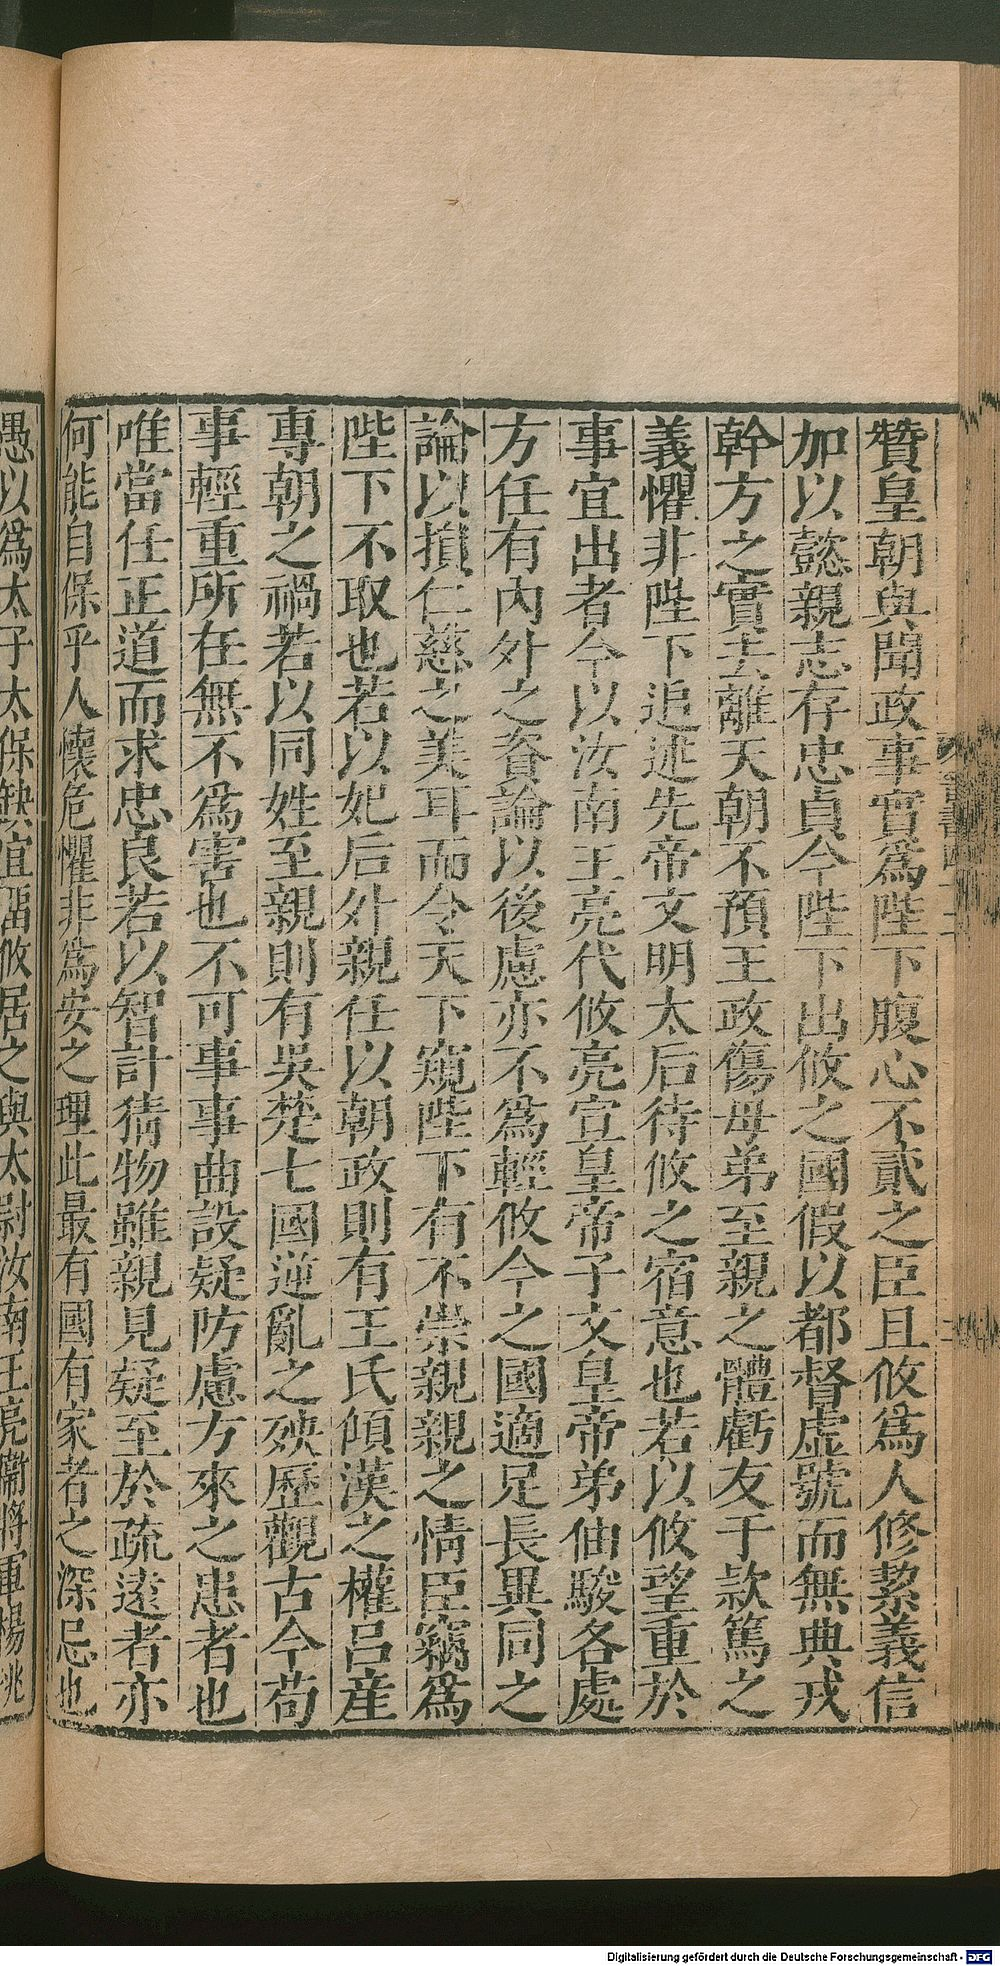 贊皇朝與聞政事實爲陛下腹心不貳之臣且攸爲人修絜義信
加以懿親志存忠貞今陛下出攸之國假以都督虛號而無典戎
幹方之實去離天朝不預王政傷母弟至親之體虧友于款篤之
義懼非陛下追述先帝文明太后待攸之宿意也若以攸望重於
事宜出者今以汝南王亮代攸亮宣皇帝子文皇帝弟伷駿各處
方任有內外之資論以後慮亦不爲輕攸今之國適足長異同之
論以損仁慈之美耳而令天下窺陛下有不崇親親之情臣竊爲
陛下不取也若以妃后外親任以朝政則有王氏傾漢之權呂產
專朝之禍若以同姓至親則有吳楚七國逆亂之殃歷觀古今苟
事輕重所在無不爲害也不可事事曲設疑防慮方來之患者也
唯當任正道而求忠良若以智計猜物雖親見疑至於疏遠者亦
何能自保乎人懷危懼非爲安之理此最有國有家者之深忌也
愚以爲太子太保缺宜留攸居之與太尉汝南王亮衞將軍楊珧
Digitalisierung gefördert durch die Deutsche Forschungsgemeinschaft - DFG